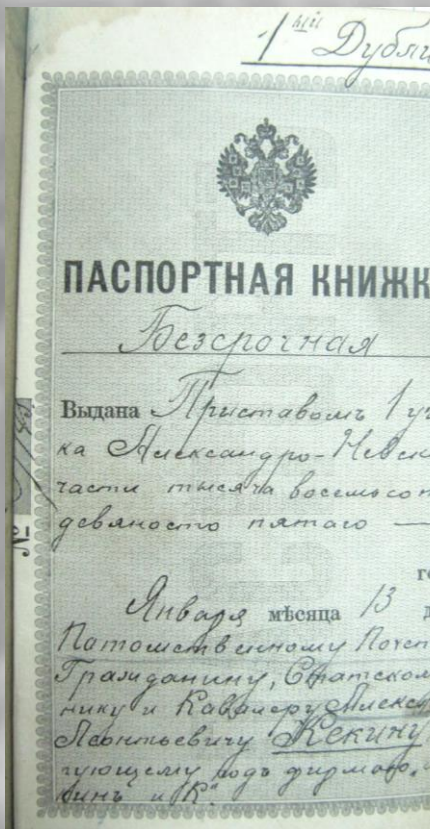 1ый Дубли
ПАСПОРТНАЯ КНИЖК
Безсрочная
Выдана Приставомъ 1 уч
ка Александро-Невск
части тысяча восемьсот
девяносто пятаго —
го
Января мѣсяца 13 д
Потомственному Почет
Гражданину, Статском
нику и Кавалеру Алекса
Леонтьевичу Кекину
гующему подъ фирмою „
кинъ и К°"
№